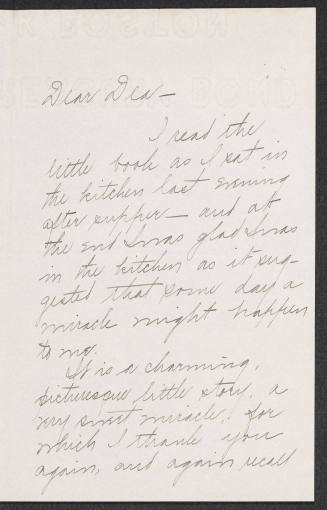 Dear Dea—
I read the
little book as I sat in
the kitchen last evening
after supper— and at
the end I was glad I was
in the kitchen as it sug-
gested that some day a
miracle might happen
to me.
It is a charming,
picturesque little story, a
very sweet miracle, for
which I thank you
again, and again recall